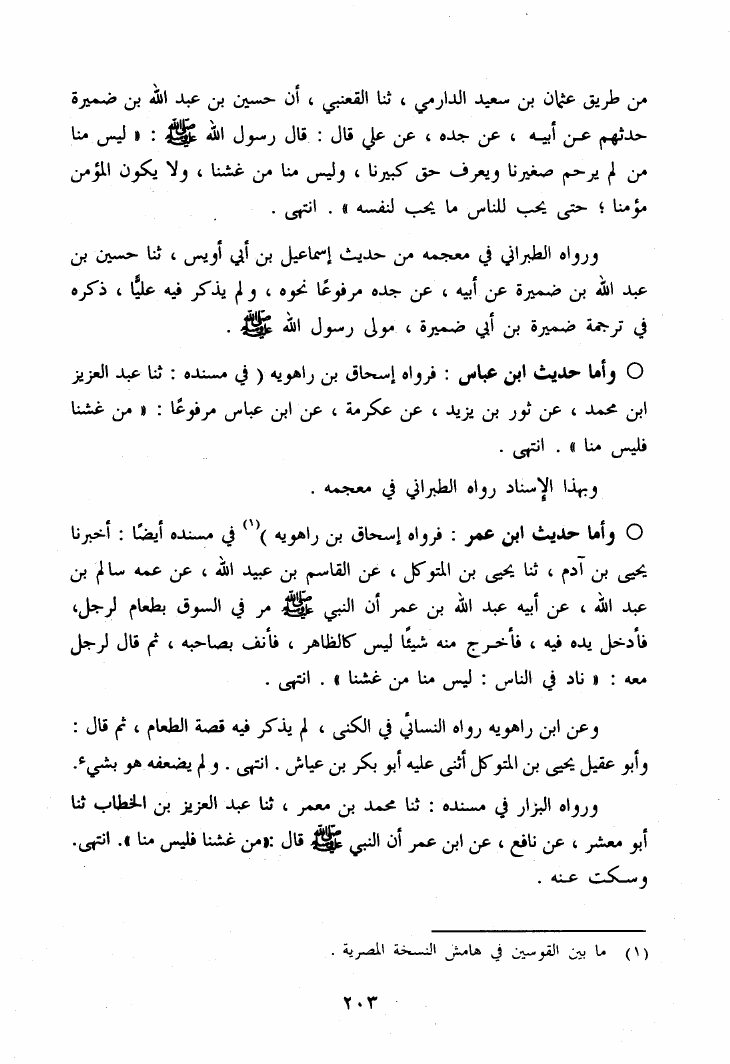 من طريق عثمان بن سعيد الدارمي ، ثنا القعنبي ، أن حسين بن عبد الله بن ضميرة
حدثهم عـن أبيـه ، عن جده ، عن علي قال : قال رسول الله ﷺ : « ليس منا
من لم يرحم صغيرنا ويعرف حق كبيرنا ، وليس منا من غشنا ، ولا يكون المؤمن
مؤمنا ؛ حتى يحب للناس ما يحب لنفسه » . انتهى .
ورواه الطبراني في معجمه من حديث إسماعيل بن أبي أويس ، ثنا حسين بن
عبد الله بن ضميرة عن أبيه ، عن جده مرفوعًا نحوه ، ولم يذكر فيه عليًّا ، ذكره
في ترجمة ضميرة بن أبي ضميرة ، مولى رسول الله ﷺ .
○ وأما حديث ابن عباس : فرواه إسحاق بن راهويه ( في مسنده : ثنا عبد العزيز
ابن محمد ، عن ثور بن يزيد ، عن عكرمة ، عن ابن عباس مرفوعًا : « من غشنا
فليس منا » . انتهى .
وبهذا الإسناد رواه الطبراني في معجمه .
○ وأما حديث ابن عمر : فرواه إسحاق بن راهويه )(١) في مسنده أيضًا : أخبرنا
يحيى بن آدم ، ثنا يحيى بن المتوكل ، عن القاسم بن عبيد الله ، عن عمه سالم بن
عبد الله ، عن أبيه عبد الله بن عمر أن النبي ﷺ مر في السوق بطعام لرجل،
فأدخل يده فيه ، فأخـرج منه شيئًا ليس كالظاهر ، فأنف بصاحبه ، ثم قال لرجل
معه : « ناد في الناس : ليس منا من غشنا » . انتهى .
وعن ابن راهويه رواه النسائي في الكنى ، لم يذكر فيه قصة الطعام ، ثم قال :
وأبو عقيل يحيى بن المتوكل أثنى عليه أبو بكر بن عياش . انتهى . ولم يضعفه هو بشيء.
ورواه البزار في مسنده : ثنا محمد بن معمر ، ثنا عبد العزيز بن الخطاب ثنا
أبو معشر ، عن نافع ، عن ابن عمر أن النبي ﷺ قال :«من غشنا فليس منا ». انتهى.
وسكت عـنه .
(١) ما بين القوسين في هامش النسخة المصرية .
٢٠٣